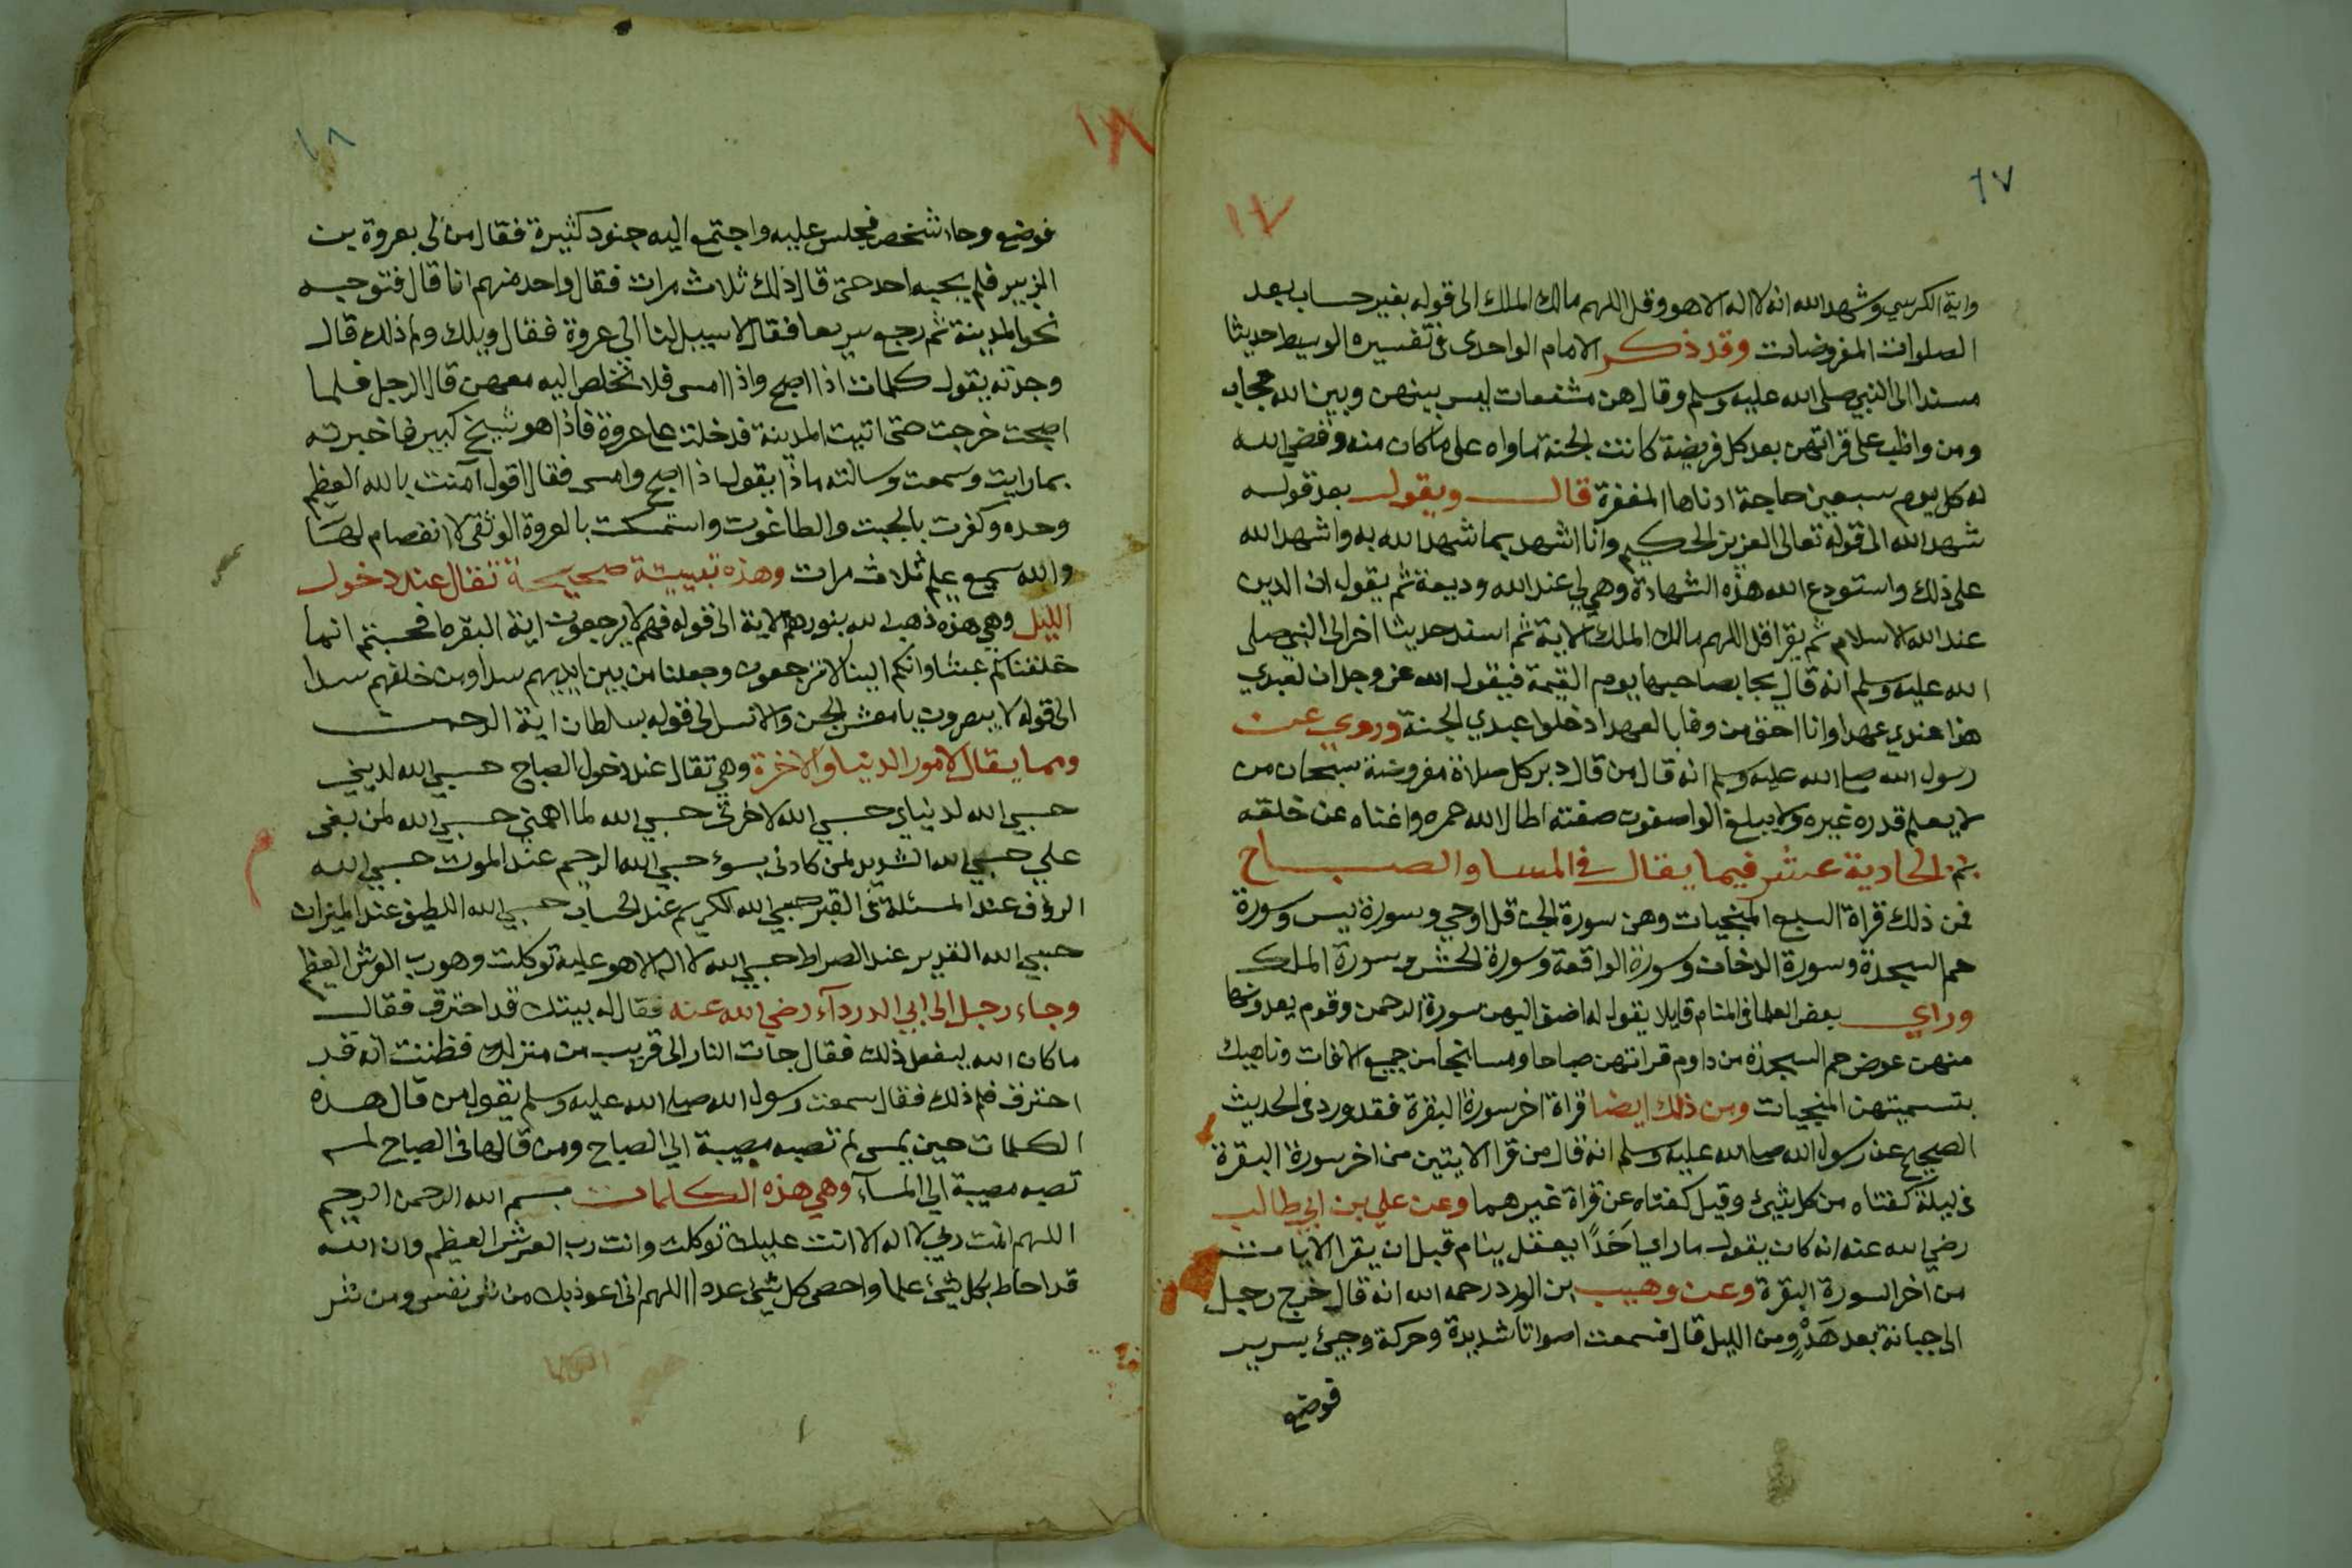 ١٧
١٧
واية الكرسي وشهد الله انه لا اله الا هو وقل اللهم مالك الملك الى قوله بغير حساب بعد
الصلوات المفروضات وقد ذكر الامام الواحدى فى تفسيره الوسيط حديثا
مسندا الى النبي صلى الله عليه وسلم وقال هن مشفعات ليس بينهن وبين الله حجاب
ومن واظب على قراتهن بعد كل فريضة كانت الجنة ماواه على ما كان منه وقضى الله
له كل يوم سبعين حاجة ادناها المغفرة قال ويقول بعد قوله
شهد الله الى قوله تعالى العزيز الحكيم وانا اشهد بما شهد الله به واشهد الله
على ذلك واستودع الله هذه الشهادة وهي لي عند الله وديعة ثم يقول ان الدين
عند الله الاسلام ثم يقرا قل اللهم مالك الملك الاية ثم اسند حديثا اخر الى النبي صلى
الله عليه وسلم انه قال يجا بصاحبها يوم القيمة فيقول الله عز وجل ان لعبدي
هذا عندي عهدا وانا احق من وفا بالعهد ادخلوا عبدي الجنة وروي عن
رسول الله صلى الله عليه وسلم انه قال من قال دبر كل صلاة مفروضة سبحان من
لا يعلم قدره غيره ولا يبلغ الواصفون صفته اطال الله عمره واغناه عن خلقه
الحادية عشر فيما يقال في المسا والصباح
فمن ذلك قراة السبع المنجيات وهن سورة الجن قل اوحي وسورة يس وسورة
حم السجدة وسورة الدخان وسورة الواقعة وسورة الحشر وسورة الملك
وراي بعض العلما فى المنام قايلا يقول له اضف اليهن سورة الرحمن وقوم يعدونها
منهن عوض حم السجدة من داوم قراتهن صباحا ومسا نجا من جميع الافات وناهيك
بتسميتهن المنجيات ومن ذلك ايضا قراة اخر سورة البقرة فقد ورد فى الحديث
الصحيح عن رسول الله صلى الله عليه وسلم انه قال من قرا الايتين من اخر سورة البقرة
فى ليلة كفتاه من كل شيئ وقيل كفتاه عن قراة غيرهما وعن علي بن ابي طالب
رضي الله عنه انه كان يقول ما راي احَدًا يعقل ينام قبل ان يقرا الايات
من اخر السورة البقرة وعن وهيب ابن الورد رحمه الله انه قال خرج رجل
الى جبانة بعد هَدْو من الليل قال فسمعت اصواتا شديدة وحركة وجيئ بسرير
فوضع
١٨
١٨
فوضع وجاء شخص فجلس عليه واجتمع اليه جنود كثيرة فقال من لى بعروة بن
الزبير فلم يجبه احد حتى قال ذلك ثلاث مرات فقال واحد منهم انا قال فتوجه
نحو المدينة ثم رجع سريعا فقال لا سبيل لنا الى عروة فقال ويلك ولم ذلك قال
وجدته يقول كلمات اذا اصبح واذا امسى فلا نخلص اليه معهن قال الرجل فلما
اصبحت خرجت حتى اتيت المدينة فدخلت على عروة فاذا هو شيخ كبير فاخبرته
بما رايت وسمعت وسالته ماذا يقول اذا اصبح وامسى فقال اقول آمنت بالله العظيم
وحده وكفرت بالجبت والطاغوت واستمسكت بالعروة الوثقى لا انفصام لها
والله سميع عليم ثلاث مرات وهذه تبييتة صحيحة تقال عند دخول
الليل وهي هذه ذهب الله بنورهم الاية الى قوله فهم لا يرجعون اية البقره افحسبتم انما
خلقناكم عبثا وانكم الينا لا ترجعون وجعلنا من بين ايديهم سدا ومن خلفهم سدا
الى قوله لا يبصرون يا معشر الجن والانس الى قوله بسلطان اية الرحمن
ومما يقال لامور الدنيا والاخرة وهي تقال عند دخول الصباح حسبي الله لديني
حسبي الله لدنياي حسبي الله لاخرتى حسبي الله لما اهمني حسبي الله لمن بغى
علي حسبي الله الشديد لمن كادنى بسوء حسبي الله الرحيم عند الموت حسبي الله
الرؤف عند المسئلة فى القبر حسبي الله الكريم عند الحساب حسبي الله اللطيف عند الميزان
حسبي الله القدير عند الصراط حسبي الله لا اله الا هو عليه توكلت وهو رب العرش العظيم
وجاء رجل الى ابي الدرداء رضي الله عنه فقال له بيتك قد احترق فقال
ما كان الله ليفعل ذلك فقال جات النار الى قريب من منزلك فظننت انه قد
احترق فلم ذلك فقال سمعت رسول الله صلى الله عليه وسلم يقول من قال هذه
الكلمات حين يمسى لم تصبه مصيبة الي الصباح ومن قالها فى الصباح لم
تصبه مصيبة الي المسآء وهي هذه الكلمات بسم الله الرحمن الرحيم
اللهم انت ربي لا اله الا انت عليك توكلت وانت رب العرش العظيم وان الله
قد احاط بكل شيئ علما واحصى كل شيئ عددا اللهم انى اعوذ بك من شر نفسى ومن شر